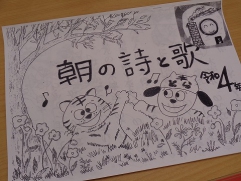 朝の詩と歌
令和4年